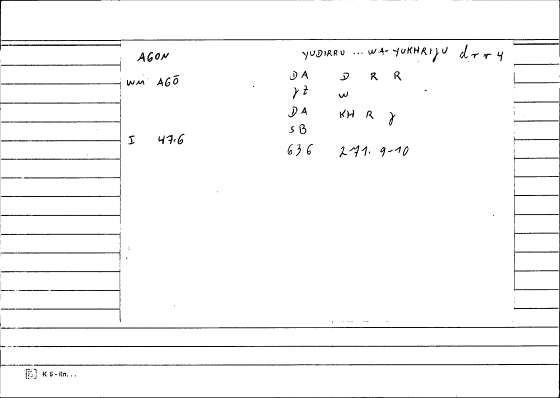 AGON YUDIRRU ... WA-YUKHRIJU drr 4
WM AGŌ DA D R R
yt w
DA KH R J
SB
I 47.6 636 271. 9-10
K 8-